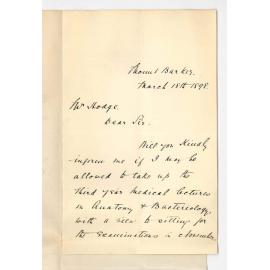 Mount Barker.
March 18th 1898.
Mr Hodge.
Dear Sir.
Will you Kindly
inform me if I may be
allowed to take up the
third year Medical lectures
in Anatomy & Bacteriology
with a view to sitting for
the examinations in November